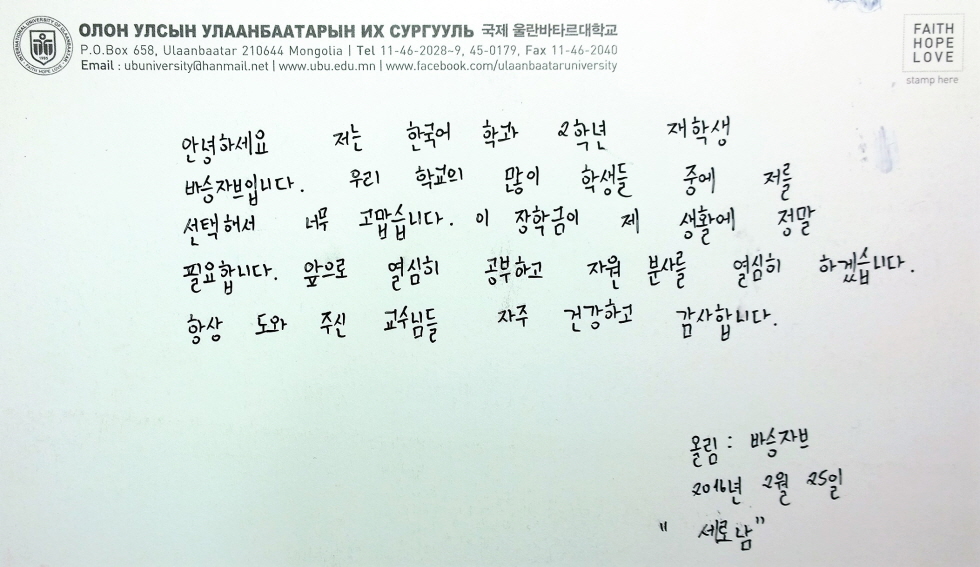 ОЛОН УЛСЫН УЛААНБААТАРЫН ИХ СУРГУУЛЬ 국제 울란바타르대학교
P.O.Box 658, Ulaanbaatar 210644 Mongolia | Tel 11-46-2028~9, 45-0179, Fax 11-46-2040
Email : ubuniversity@hanmail.net | www.ubu.edu.mn | www.facebook.com/ulaanbaataruniversity
INTERNATIONAL UNIVERSITY OF ULAANBAATAR
FAITH HOPE LOVE
FAITH
HOPE
LOVE
stamp here
안녕하세요 저는 한국어 학과 2학년 재학생
바승자브입니다. 우리 학교의 많이 학생들 중에 저를
선택해서 너무 고맙습니다. 이 장학금이 제 생활에 정말
필요합니다. 앞으로 열심히 공부하고 자원 분사를 열심히 하겠습니다.
항상 도와 주신 교수님들 자주 건강하고 감사합니다.
올림 : 바승자브
2016년 2월 25일
" 세로남 "